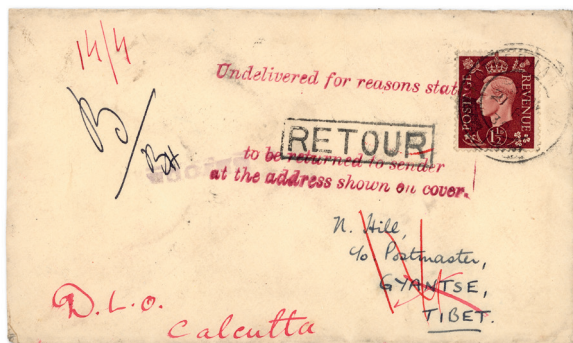 14/4
Undelivered for reasons stat
POSTAGE
REVENUE
1½
B/BH
RETOUR
to be returned to sender
at the address shown on cover.
N. Hill,
c/o Postmaster,
GYANTSE,
TIBET.
D.L.O.
Calcutta